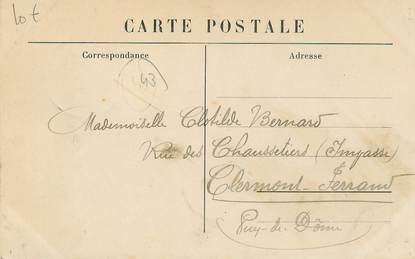 Lot
CARTE POSTALE
Correspondance
Adresse
43
Mademoiselle Clotilde Bernard
Rue des Chaussetiers (Impasse)
Clermont-Ferrand
Puy-de-Dôme